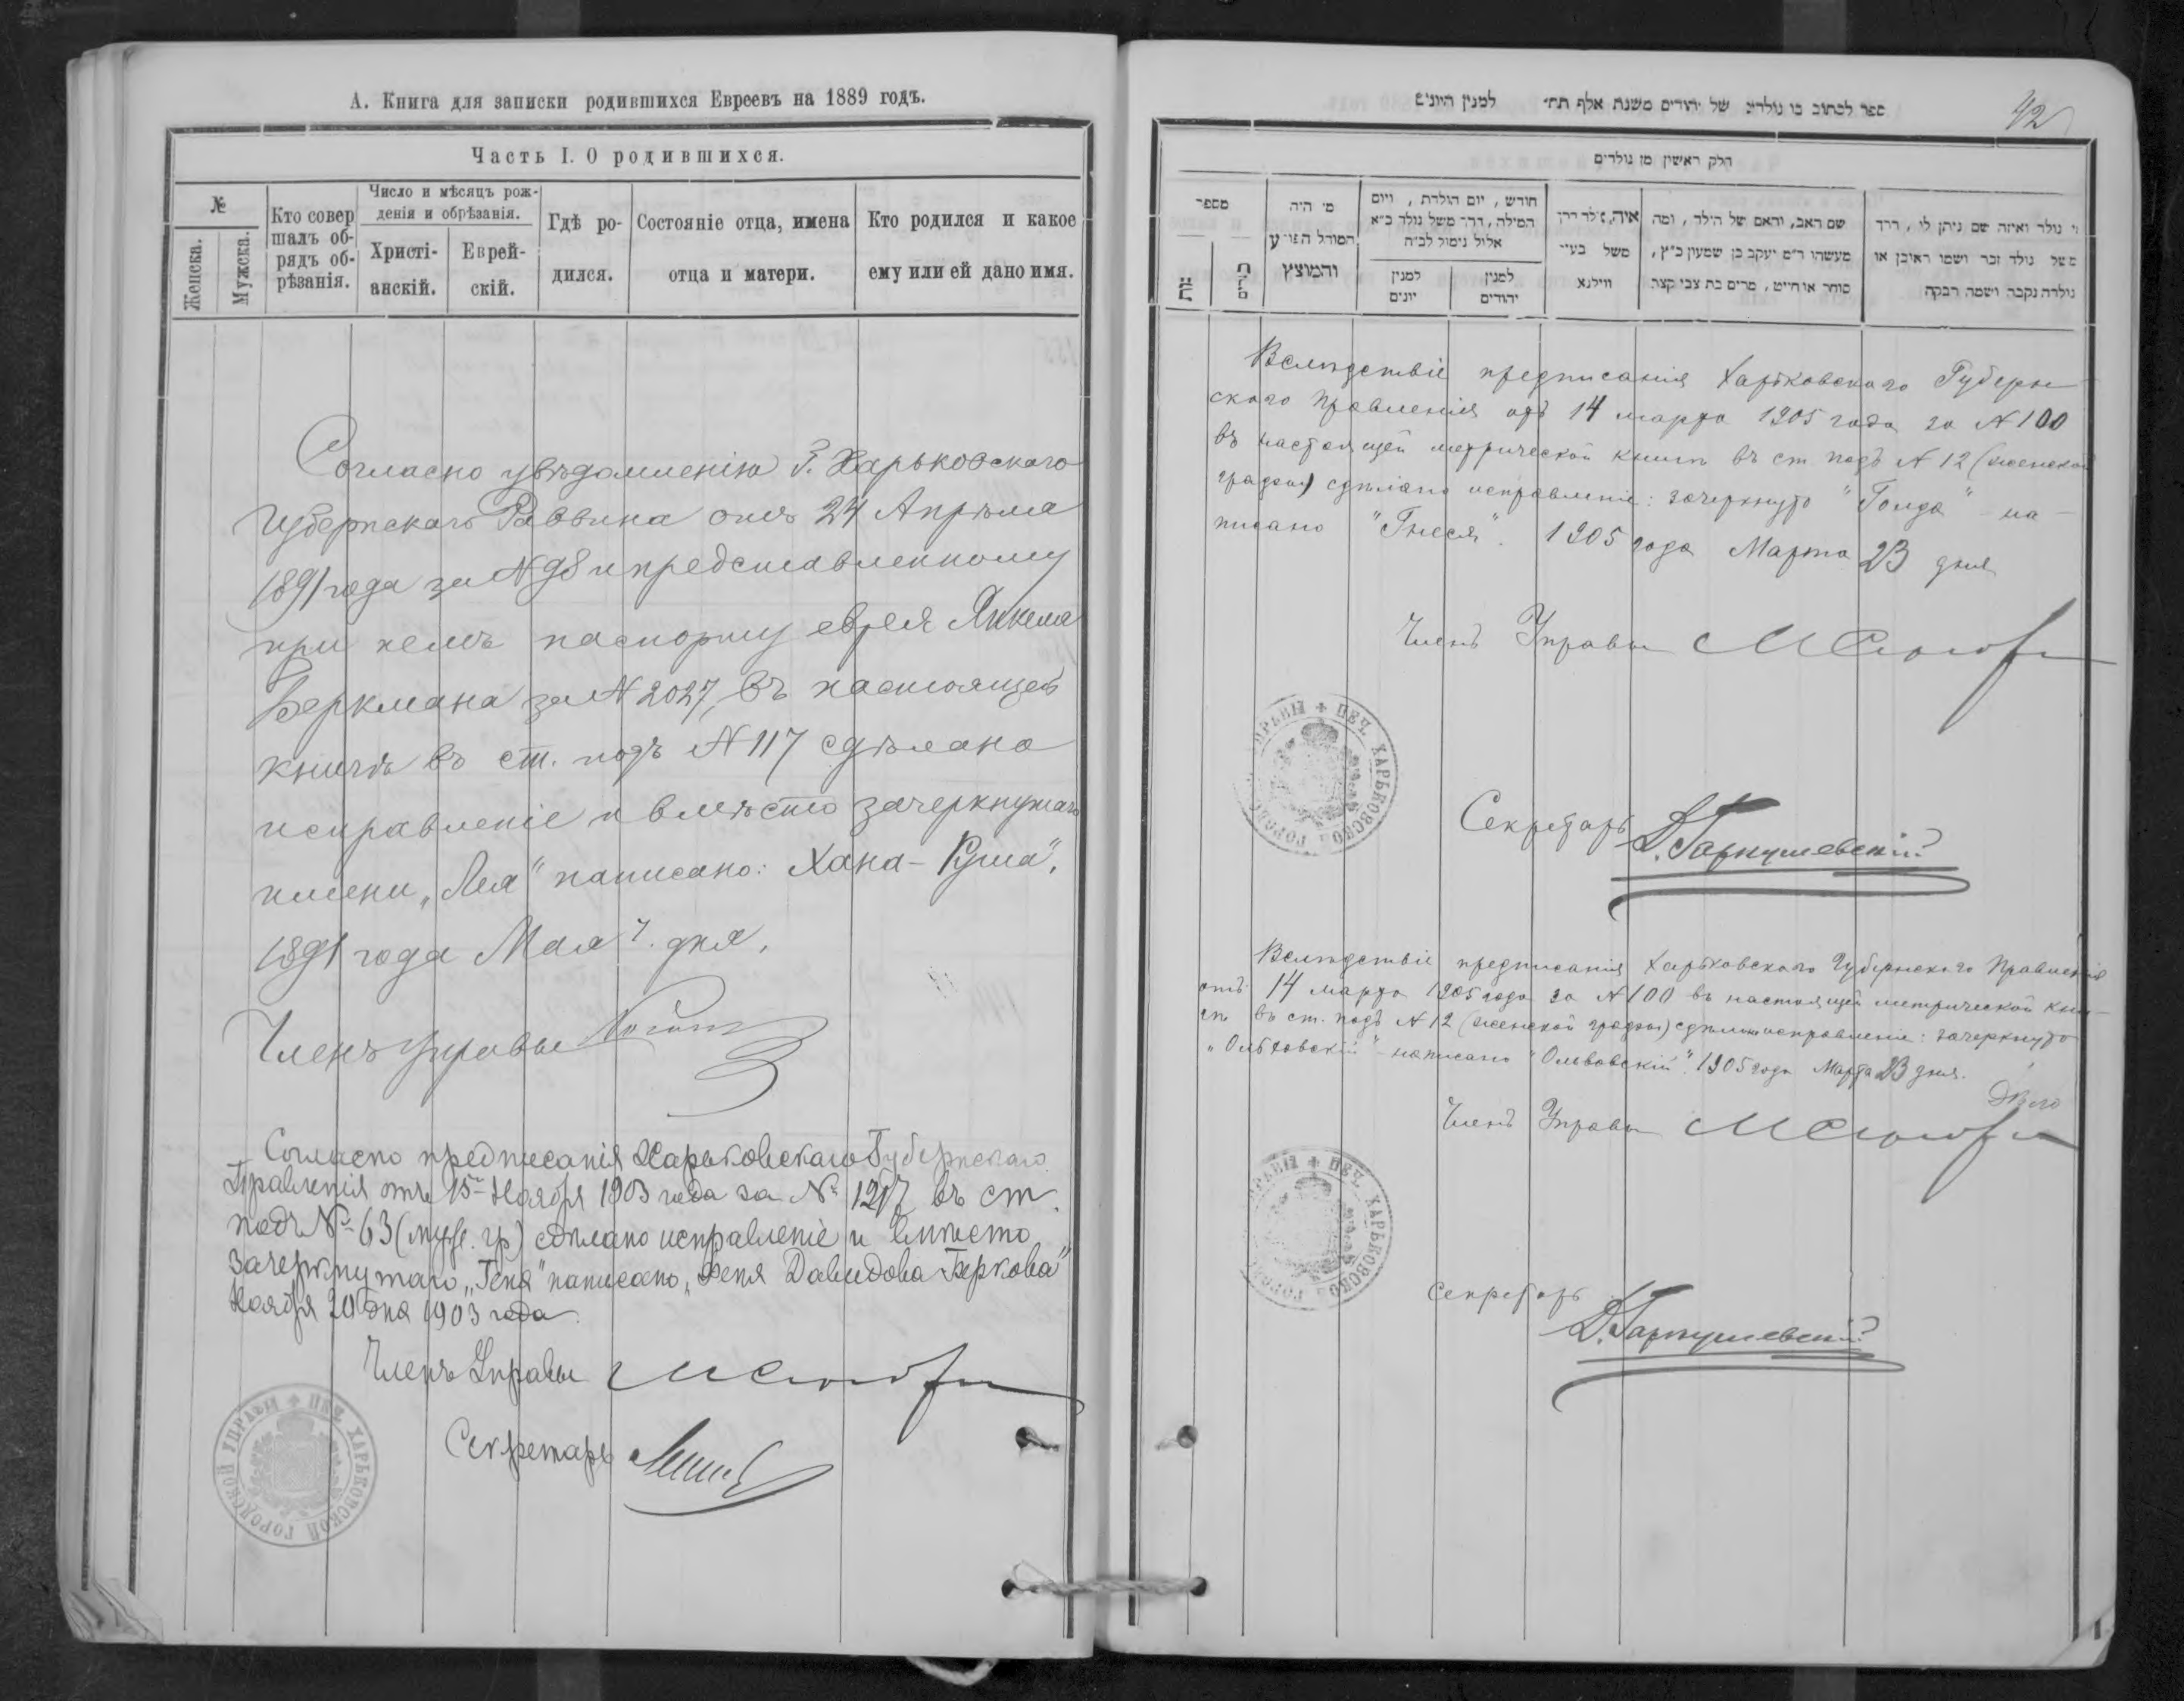 А. Книга для записки родившихся Евреевъ на 1889 годъ.
Часть I. О родившихся.
№
Женска.
Мужска.
Кто совер
шалъ об-
рядъ об-
рѣзанія.
Число и мѣсяцъ рож-
денія и обрѣзанія.
Христі-
анскій.
Еврей-
скій.
Гдѣ ро-
дился.
Состояніе отца, имена
отца и матери.
Кто родился и какое
ему или ей дано имя.
Согласно увѣдомленію Г. Харьковскаго
Губернскаго Раввина отъ 24 Апрѣля
1891 года за № 98 и представленному
при немъ паспорту еврея Янкеля
Беркмана за № 2027, въ настоящей
книгѣ въ ст. подъ № 117 сдѣлано
исправленіе и вмѣсто зачеркнутаго
имени „Лея" написано: Хана-
1891 года Мая дня.
Членъ Управы
Согласно предписанія Харьковскаго Губернскаго
Правленія отъ 15 Ноября 1903 года за № въ ст.
подъ № 63 (муж. гр) сдѣлано исправленіе и вмѣсто
зачеркнутаго „Геня" написано „ Давидова Беркова"
Ноября 20 дня 1903 года
Членъ Управы
Секретарь
ПЕЧ. ХАРЬКОВСКОЙ ГОРОДСКОЙ УПРАВЫ
ספר לכתוב בו נולדים של יהודים משנת אלף תת׳ למנין היונים
42
חלק ראשון מן נולדים
מספר
מי היה
המוהל הפורע
והמוצץ
חודש, יום הולדת, ויום
המילה, דרך משל נולד כ״א
אלול נימול לכ״ח
למנין
יונים
למנין
יהודים
איה, נולד דרך
משל בעיר
ווילנא
שם האב, והאם של הילד, ומה
מעשהו ר״מ יעקב בן שמעון כ״ץ,
סוחר או חייט, מרים בת צבי קצב
מי נולד ואיזה שם ניתן לו, דרך
משל נולד זכר ושמו ראובן או
נולדה נקבה ושמה רבקה
Вслѣдствіе предписанія Харьковскаго Губерн-
скаго Правленія отъ 14 марта 1905 года за № 100
въ настоящей метрической книгѣ въ ст. подъ № 12 (женской
графы) сдѣлано исправленіе: зачеркнуто "Голда" на-
писано "Гнеся". 1905 года Марта 23 дня
Членъ Управы
ПЕЧ. ХАРЬКОВСКОЙ ГОРОДСКОЙ УПРАВЫ
Секретарь
Вслѣдствіе предписанія Харьковскаго Губернскаго Правленія
отъ 14 марта 1905 года за № 100 въ настоящей метрической кни-
гѣ въ ст. подъ № 12 (женской графы) сдѣлано исправленіе: зачеркнуто
"Ольховскій" написано "Ольвовскій". 1905 года Марта 23 дня.
Членъ Управы
ПЕЧ. ХАРЬКОВСКОЙ ГОРОДСКОЙ УПРАВЫ
Секретарь